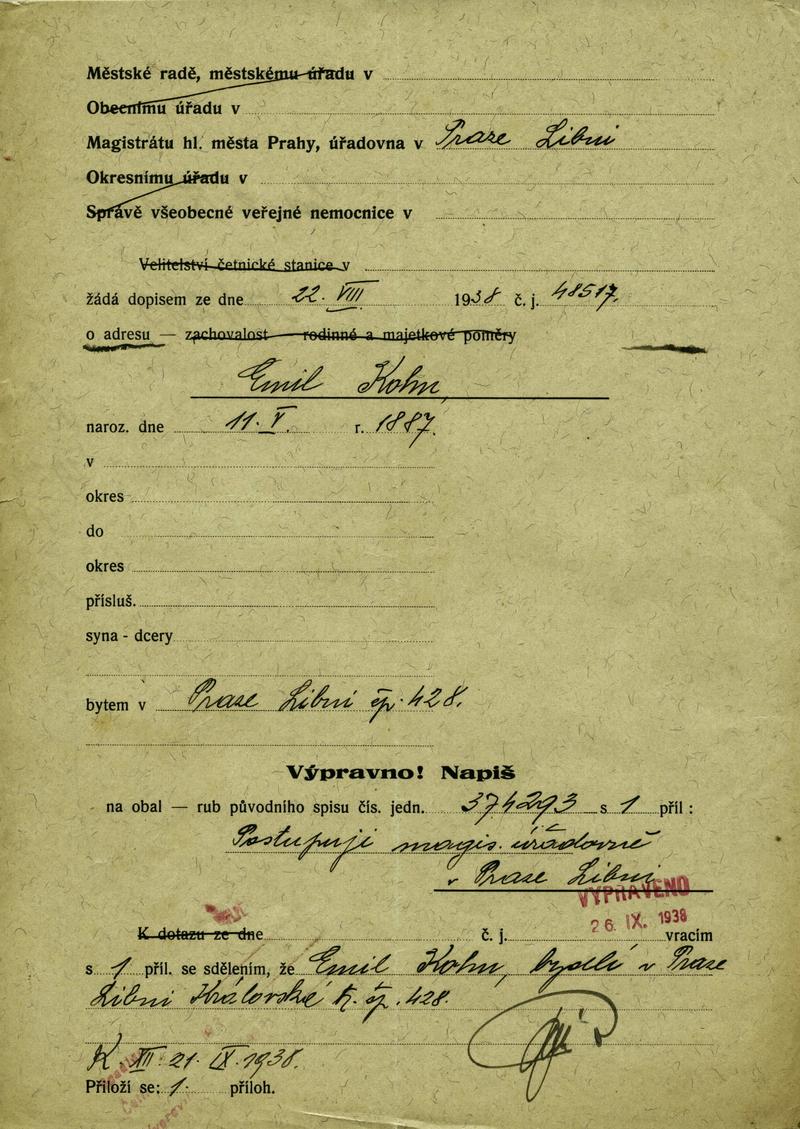 Městské radě, městskému úřadu v
Obecnímu úřadu v
Magistrátu hl. města Prahy, úřadovna v Praze Libni
Okresnímu úřadu v
Správě všeobecné veřejné nemocnice v
Velitelství četnické stanice v
žádá dopisem ze dne 22. VIII 1938 č. j. 48517.
o adresu — zachovalost — rodinné a majetkové poměry
Emil Kohn,
naroz. dne 11. V. r. 1887.
v
okres
do
okres
přísluš.
syna - dcery
bytem v Praze Libni čp. 428.
Výpravno! Napiš
na obal — rub původního spisu čís. jedn. 374293 s 1 příl :
Postupuji magis. úřadovně
v Praze Libni
VYPRAVENO
26. IX. 1938
K dotazu ze dne č. j. vracím
s 1 příl. se sdělením, že Emil Kohn, bydlí v Praze
Libni Královské tř. čp. 428.
K. III. 21. IX. 1938.
Přiloží se: 1 příloh.